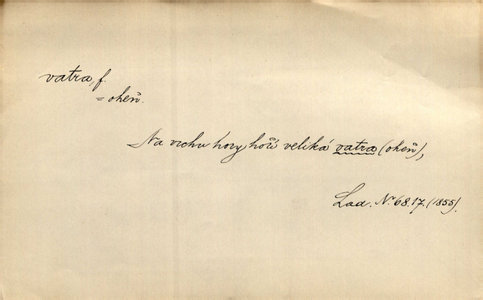 vatra, f.
= oheň.
Na vrchu hory hoří veliká vatra (oheň),
Lad. N. 68.17. (1855).